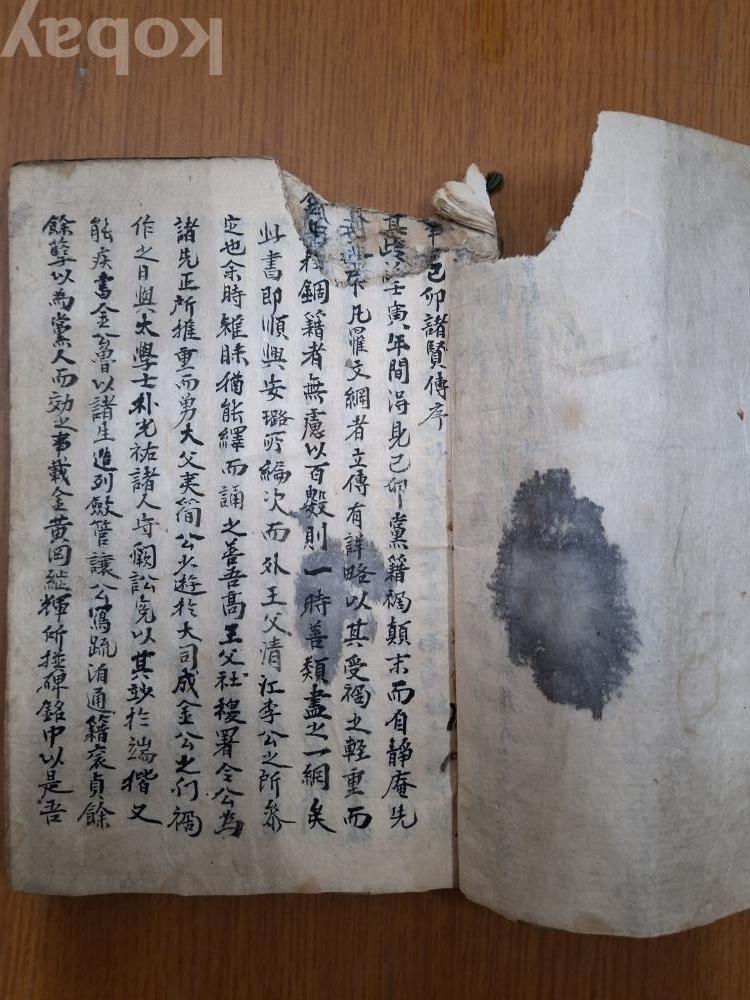 kobay
己卯諸賢傳序
年間得見己卯黨籍禍顚末而自靜庵先
下凡罹文網者立傳有詳略以其受禍之輕重而
錮籍者無慮以百數則一時善類盡之一網矣
此書卽順興安璐所編次而外王父淸江李公之所叅
定也余時雖昧猶能繹而誦之善吾高王父社稷署令公爲
諸先正所推重而勇大父夷簡公少遊於大司成金公之門禍
作之日與太學士朴光祐諸人守闕訟寃以其
能疾書金公魯以諸生進列
餘孼以爲黨人而効之事載金黃岡繼輝所撰碑銘中以是吾